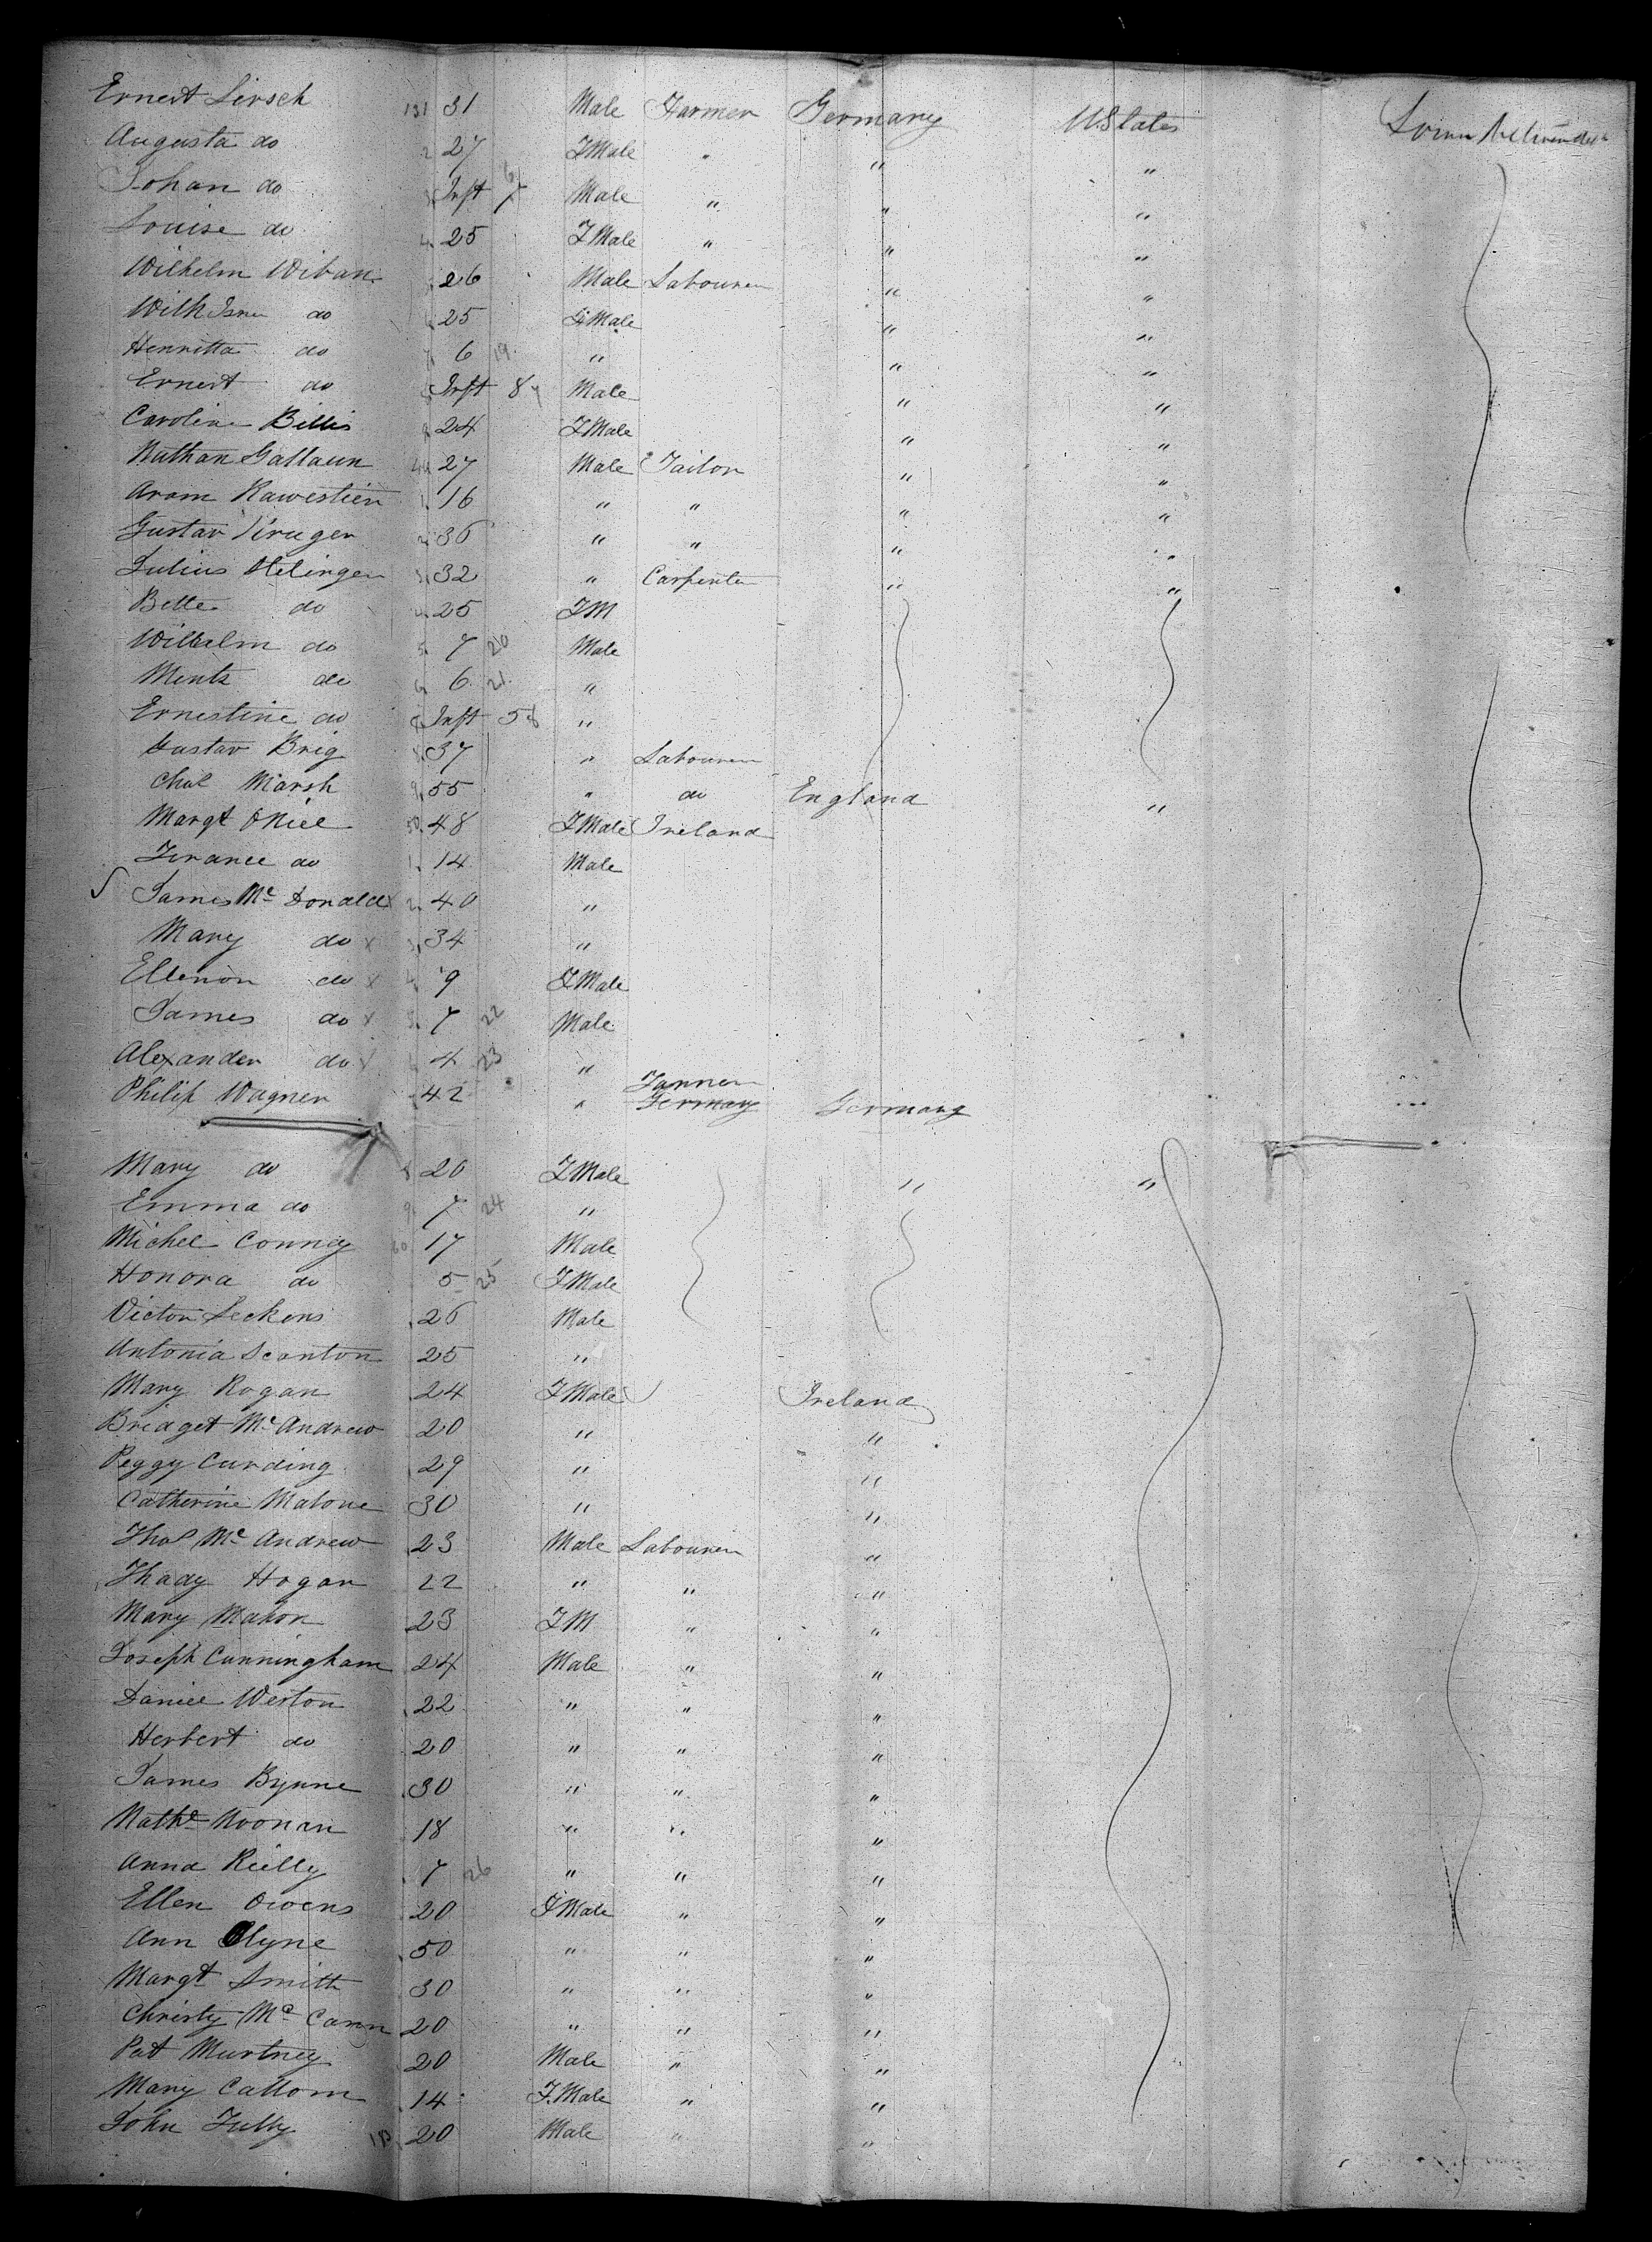 Ernest Lirsch 131 31 Male Farmer Germany U States
Augusta do 2 27 FMale " " "
Johan do 3 Inft 7 Male " " "
Louise do 4 25 FMale " " "
Wilhelm Wiban 26 Male Labourer " "
do 25 FMale " "
Henritta do 6 19 " " "
Ernest do Inft 8 Male " "
Caroline Billis 9 24 FMale " "
Nathan Gallaun 40 27 Male Tailor " "
Aram Rawestien 1 16 " " " "
Gustav Kruger 2 36 " " " "
Julius Helinger 3 32 " Carpenter " "
Bette do 4 25 FM
Wilhelm do 5 7 20 Male
Mentz do 6 6 21 "
Ernestine do Inft 58 "
Gustav Brig 8 37 " Labourer
Chas Marsh 9 55 " do England "
Margt ONiel 50 48 FMale Ireland
do 1 14 Male
James Mc Donald x 2 40 "
Mary do x 3 34 "
Ellenor do x 4 9 FMale
James do x 5 7 22 Male
Alexander do x 4 23 "
Philip Wagner 42 " Tanner
Germany Germany
Mary do 8 20 FMale " "
Emma do 9 7 24 "
Michel Conney 60 17 Male
Honora do 5 25 FMale
Victor Leckens 26 Male
Antonia Scanton 25 "
Mary Rogan 24 FMale Ireland
Bridget Mc Andrew 20 " "
Peggy Curding 29 " "
Catherine Malone 30 " "
Thos Mc Andrew 23 Male Labourer "
Thady Hogan 22 " " "
Mary Mahon 23 FM " "
Joseph Cunningham 24 Male " "
Daniel Weston 22 " " "
Herbert do 20 " " "
James Byrne 30 " " "
Nathl Noonan 18 " " "
Anna Rielly 7 26 " " "
Ellen Owens 20 FMale " "
Ann Clyne 50 " " "
Margt Smith 30 " " "
Christy Mc Cann 20 " " "
Pat Murtney 20 Male " "
Mary Callom 14 F.Male " "
John Tully 20 Male " "